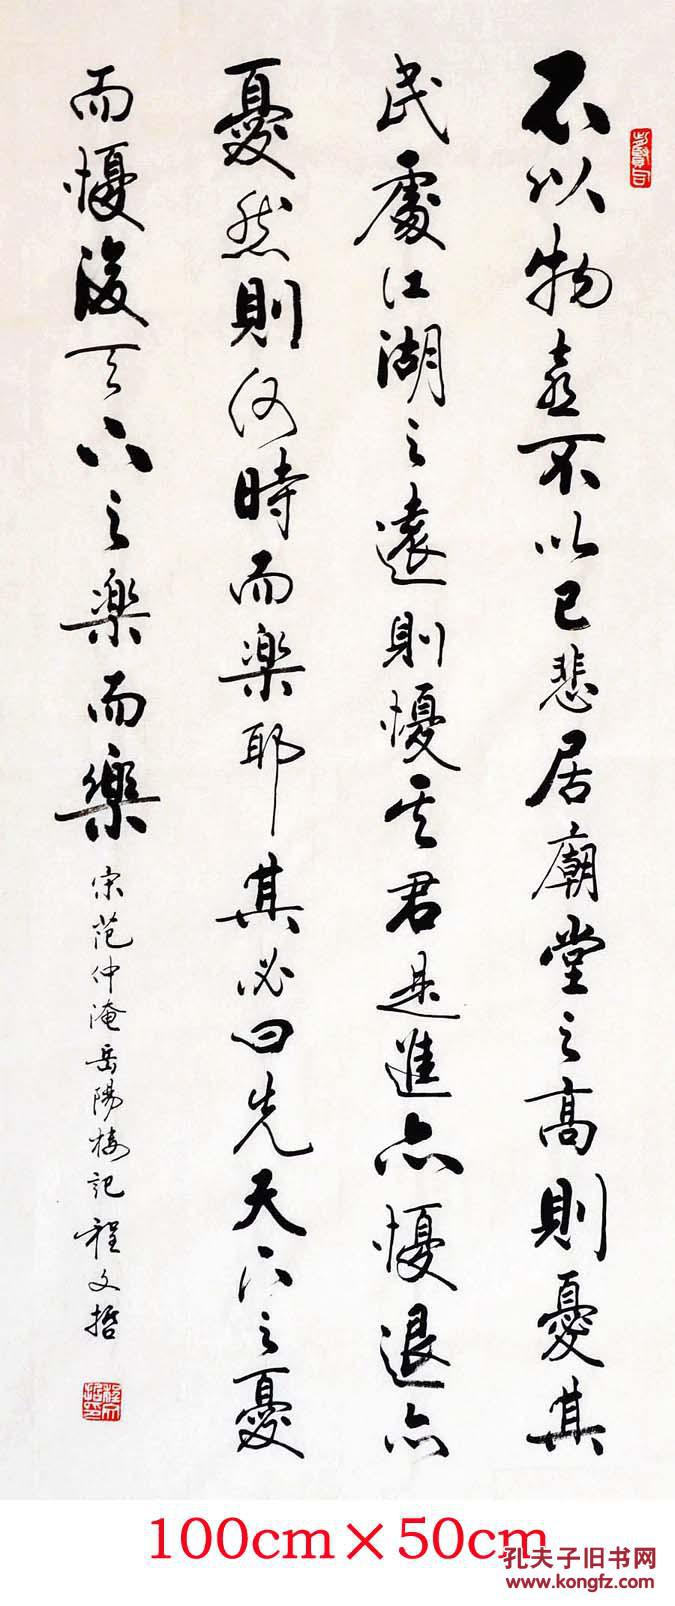 不以物喜不以己悲居廟堂之高則憂其
民處江湖之遠則懮其君是進亦懮退亦
憂然則何時而楽耶其必曰先天下之憂
而懮後天下之楽而樂
宋范仲淹岳陽楼記程文哲
100cm×50cm
孔夫子旧书网
www.kongfz.com